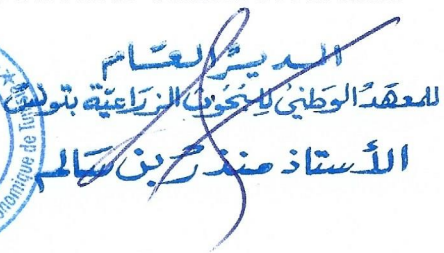 المدير العام
للمعهد الوطني للبحوث الزراعية بتونس
الأستاذ منذر بن سالم
onomique de Tunis